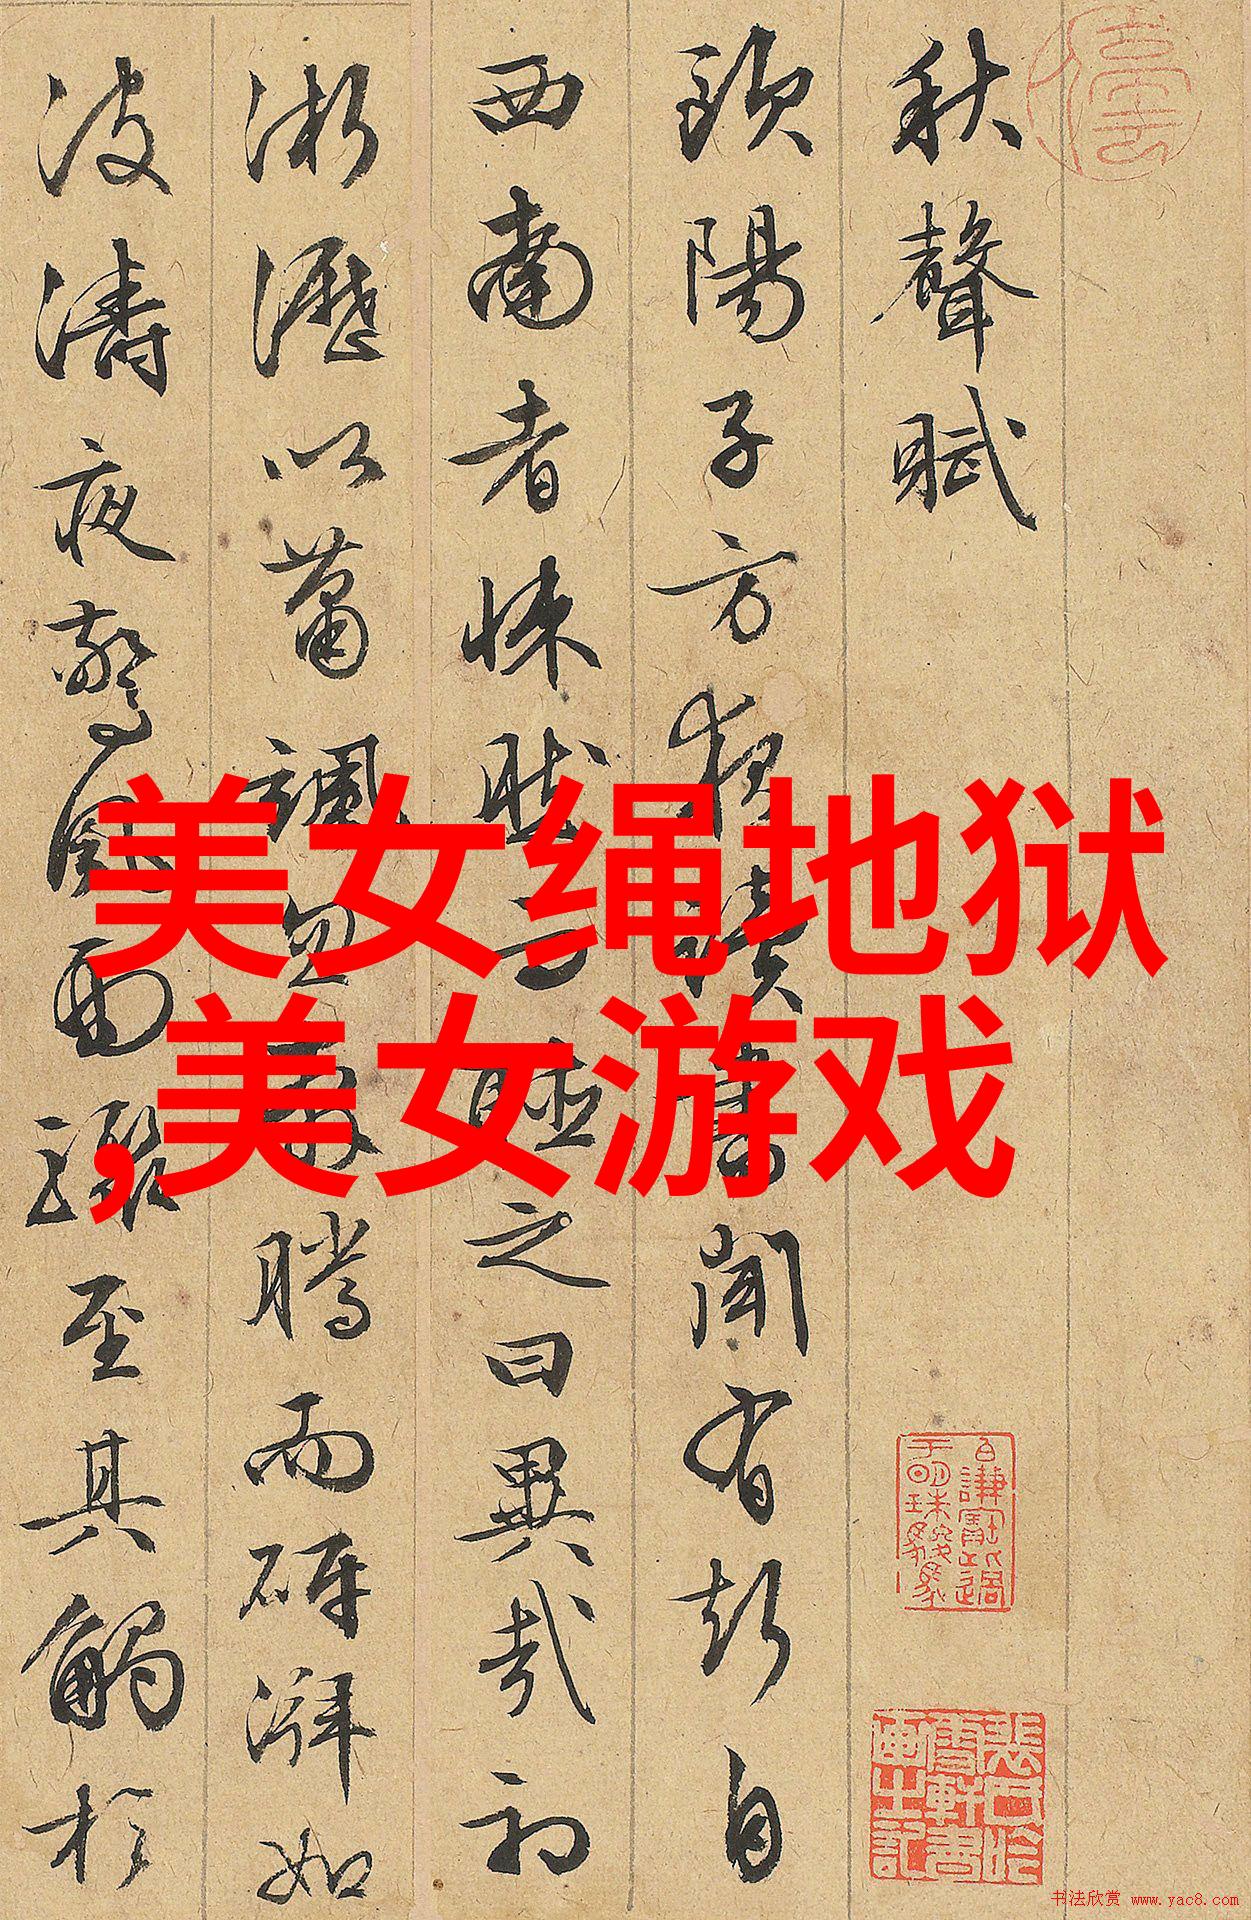 秋聲賦
歐陽子方夜讀書聞有聲自
西南者悚然而聽之曰異哉初
淅瀝以蕭颯忽奔騰而砰湃如
波濤夜驚風雨驟至其觸於
美女绳地狱
,美女游戏
书法欣赏 www.yac8.com